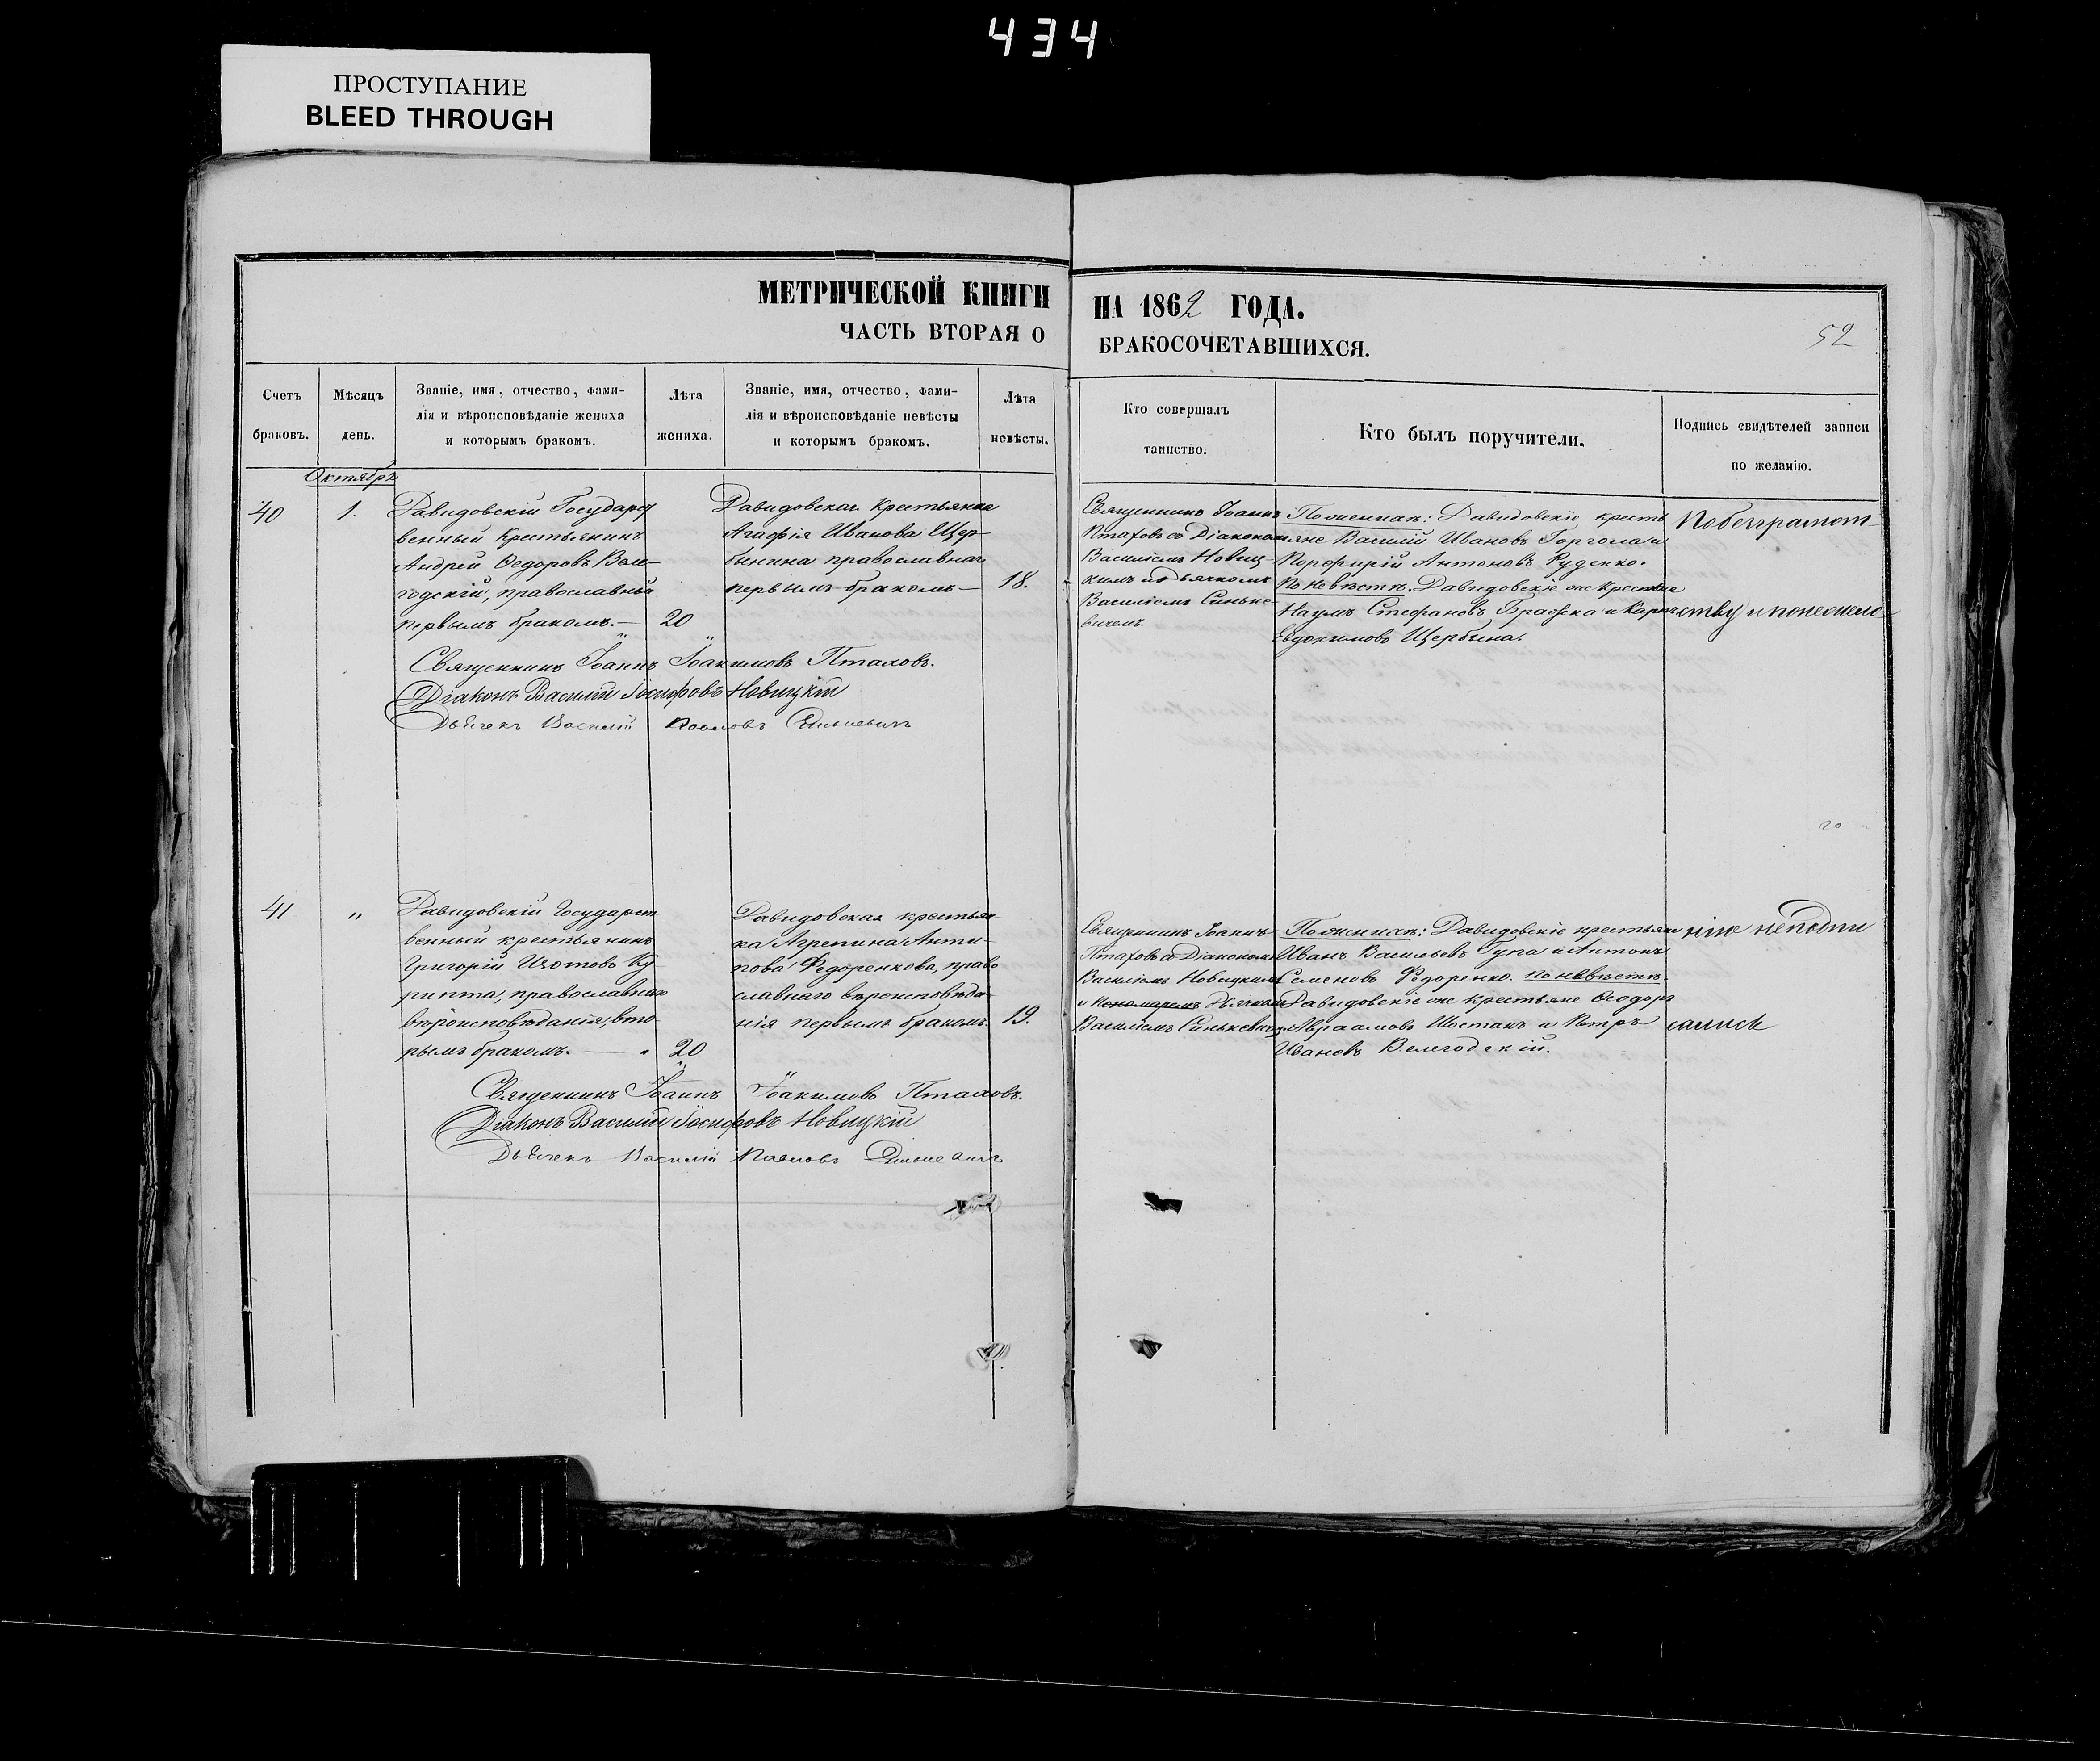 434
ПРОСТУПАНИЕ
BLEED THROUGH
МЕТРИЧЕСКОЙ КНИГИ НА 1862 ГОДА.
ЧАСТЬ ВТОРАЯ О БРАКОСОЧЕТАВШИХСЯ.
52
Счетъ браковъ.
Мѣсяцъ день.
Званіе, имя, отчество, фами-
лія и вѣроисповѣданіе жениха
и которымъ бракомъ.
Лѣта жениха.
Званіе, имя, отчество, фами-
лія и вѣроисповѣданіе невѣсты
и которымъ бракомъ.
Лѣта невѣсты.
Кто совершалъ
таинство.
Кто былъ поручители.
Подпись свидѣтелей записи
по желанію.
Октябрь
40
1.
Давидовскій Государст
венный Крестьянинъ
Андрей Ѳедоровъ Веле-
годскій, православный
первымъ бракомъ.—
20
Давидовская Крестьянка
Агафія Иванова Щер-
бинина православная
первымъ бракомъ—
18.
Священникъ Іоаннъ
Птаховъ со Діакономъ
Василіемъ Новиц-
кимъ и дьячкомъ
Василіемъ Синьке-
вичемъ.
По женихѣ: Давидовскіе кресть
яне Василій Ивановъ Горгола и
Порфирій Антоновъ Руденко.
По невѣстѣ. Давидовскіе же Крестьяне
Наумъ Стефановъ Бражка и Карпъ
Евдокимовъ Щербина.
По безграмот-
ству и по нежела-
Священникъ Іоаннъ Іоакимовъ Птаховъ.
Діаконъ Василій Іосифовъ Новицкій
Дьячекъ Василій Павловъ Синькевичъ
41
"
Давидовскій Государст
венный крестьянинъ
Григорій Изотовъ Ку
рипта, православнаго
вѣроисповѣданія, вто-
рымъ бракомъ.—
20
Давидовская крестьян
ка Агрепина Анти-
пова Федоренкова, право
славнаго вѣроисповѣда-
нія первымъ бракомъ.
19.
Священникъ Іоаннъ
Птаховъ со Діакономъ
Василіемъ Новицкимъ
и Пономаремъ Дьячкомъ
Василіемъ Синькевичемъ
По женихѣ: Давидовскіе крестьяне
Иванъ Васильевъ Гупа и Антонъ
Семеновъ Федоренко. По невѣстѣ.
Давидовскіе же крестьяне Ѳеодоръ
Авраамовъ Шостакъ и Петръ
Ивановъ Велегодскій.
нію неподпи
сались
Священникъ Іоаннъ Іоакимовъ Птаховъ.
Діаконъ Василій Іосифовъ Новицкій
Дьячекъ Василій Павловъ Синькевичъ